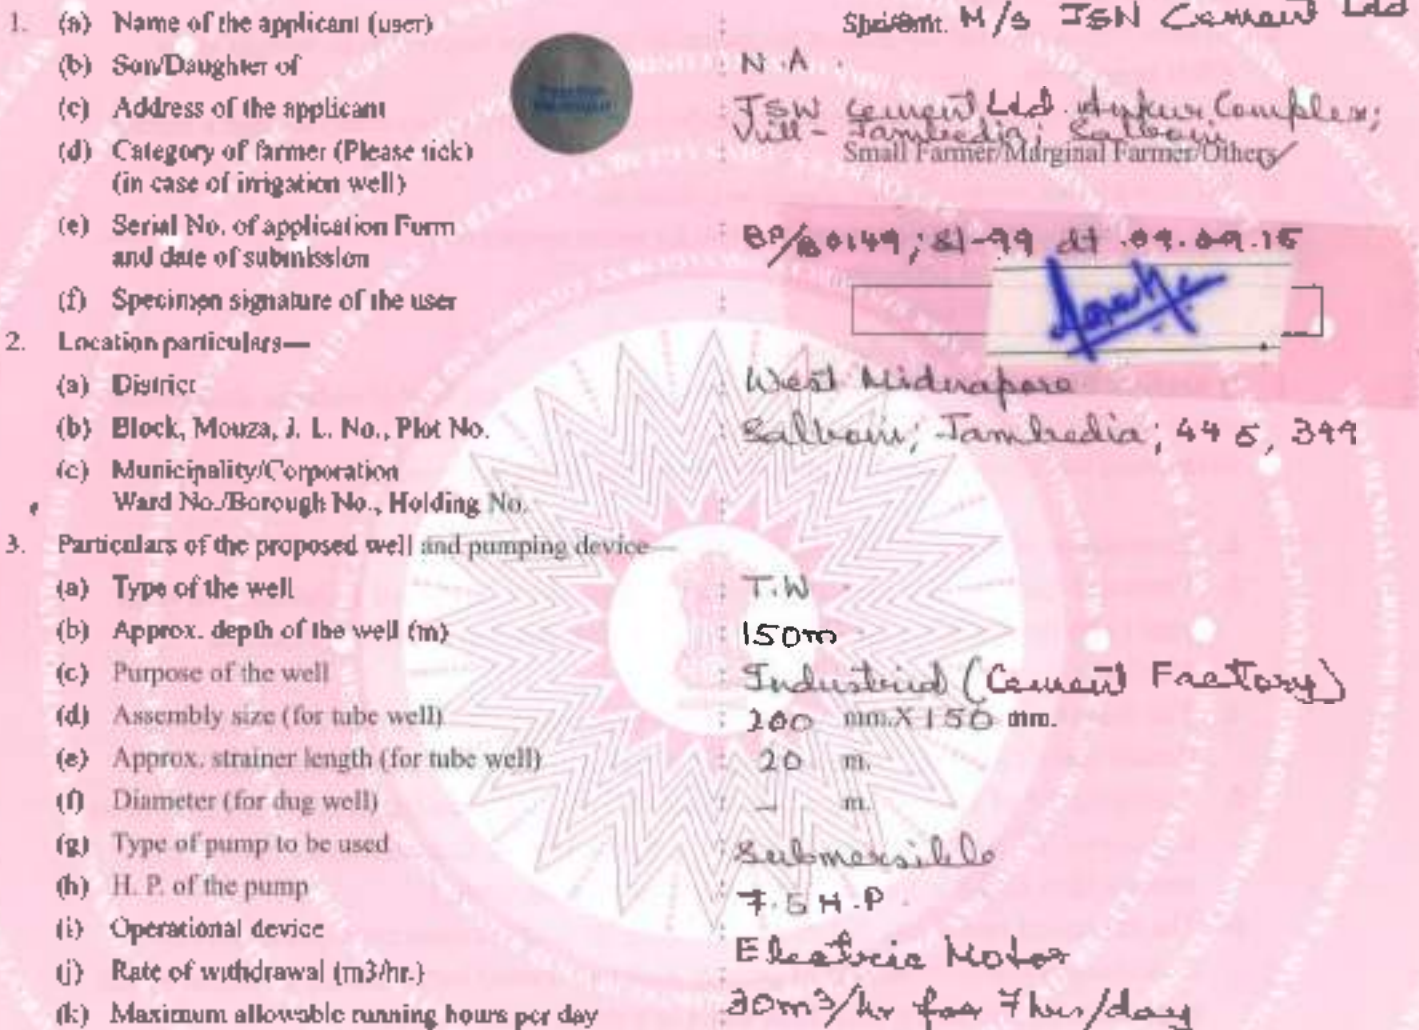 1. (a) Name of the applicant (user) : Shri/Smt. M/s JSW Cement Ltd
(b) Son/Daughter of : N.A.
(c) Address of the applicant : JSW Cement Ltd. Ankur Complex;
Vill- Jambedia; Salboni
(d) Category of farmer (Please tick) : Small Farmer/Marginal Farmer/Others
(in case of irrigation well)
(e) Serial No. of application Form : 89-99 dt .09.09.15
and date of submission
(f) Specimen signature of the user :
2. Location particulars—
(a) District : West Midnapore
(b) Block, Mouza, J. L. No., Plot No. : Salboni; Jambedia; 445, 399
(c) Municipality/Corporation :
Ward No./Borough No., Holding No.
3. Particulars of the proposed well and pumping device—
(a) Type of the well : T.W
(b) Approx. depth of the well (m) : 150m
(c) Purpose of the well : Industrial (Cement Factory)
(d) Assembly size (for tube well) : 200 mm.X 150 mm.
(e) Approx. strainer length (for tube well) : 20 m.
(f) Diameter (for dug well) : – m.
(g) Type of pump to be used : Submersible
(h) H. P. of the pump : 7.5 H.P.
(i) Operational device : Electric Motor
(j) Rate of withdrawal (m3/hr.) : 30m3/hr for 7 hrs/day
(k) Maximum allowable running hours per day :